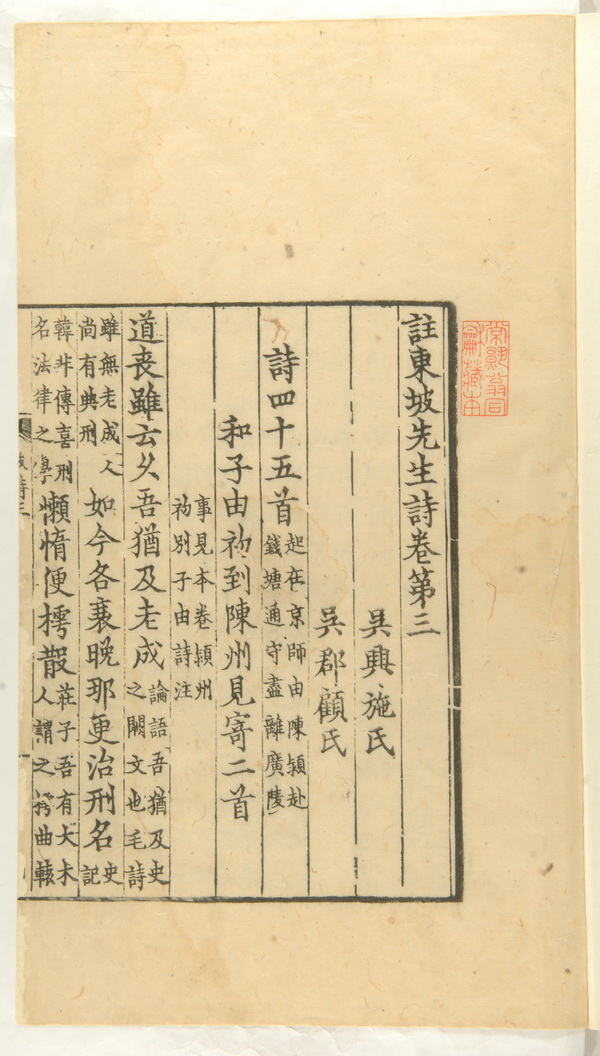 常熟翁同龢藏本
註東坡先生詩卷第三
吳興施氏
吳郡顧氏
詩四十五首 起在京師由陳潁赴錢塘通守盡離廣陵
和子由初到陳州見寄二首
事見本卷潁州初別子由詩注
道喪雖云乆吾猶及老成 論語吾猶及史之闕文也毛詩
雖無老成人尚有典刑 如今各衰晚那更治刑名 史記
韓非傳喜刑名法律之學 懶惰便樗散 莊子吾有大木人謂之樗曲轅
坡詩三